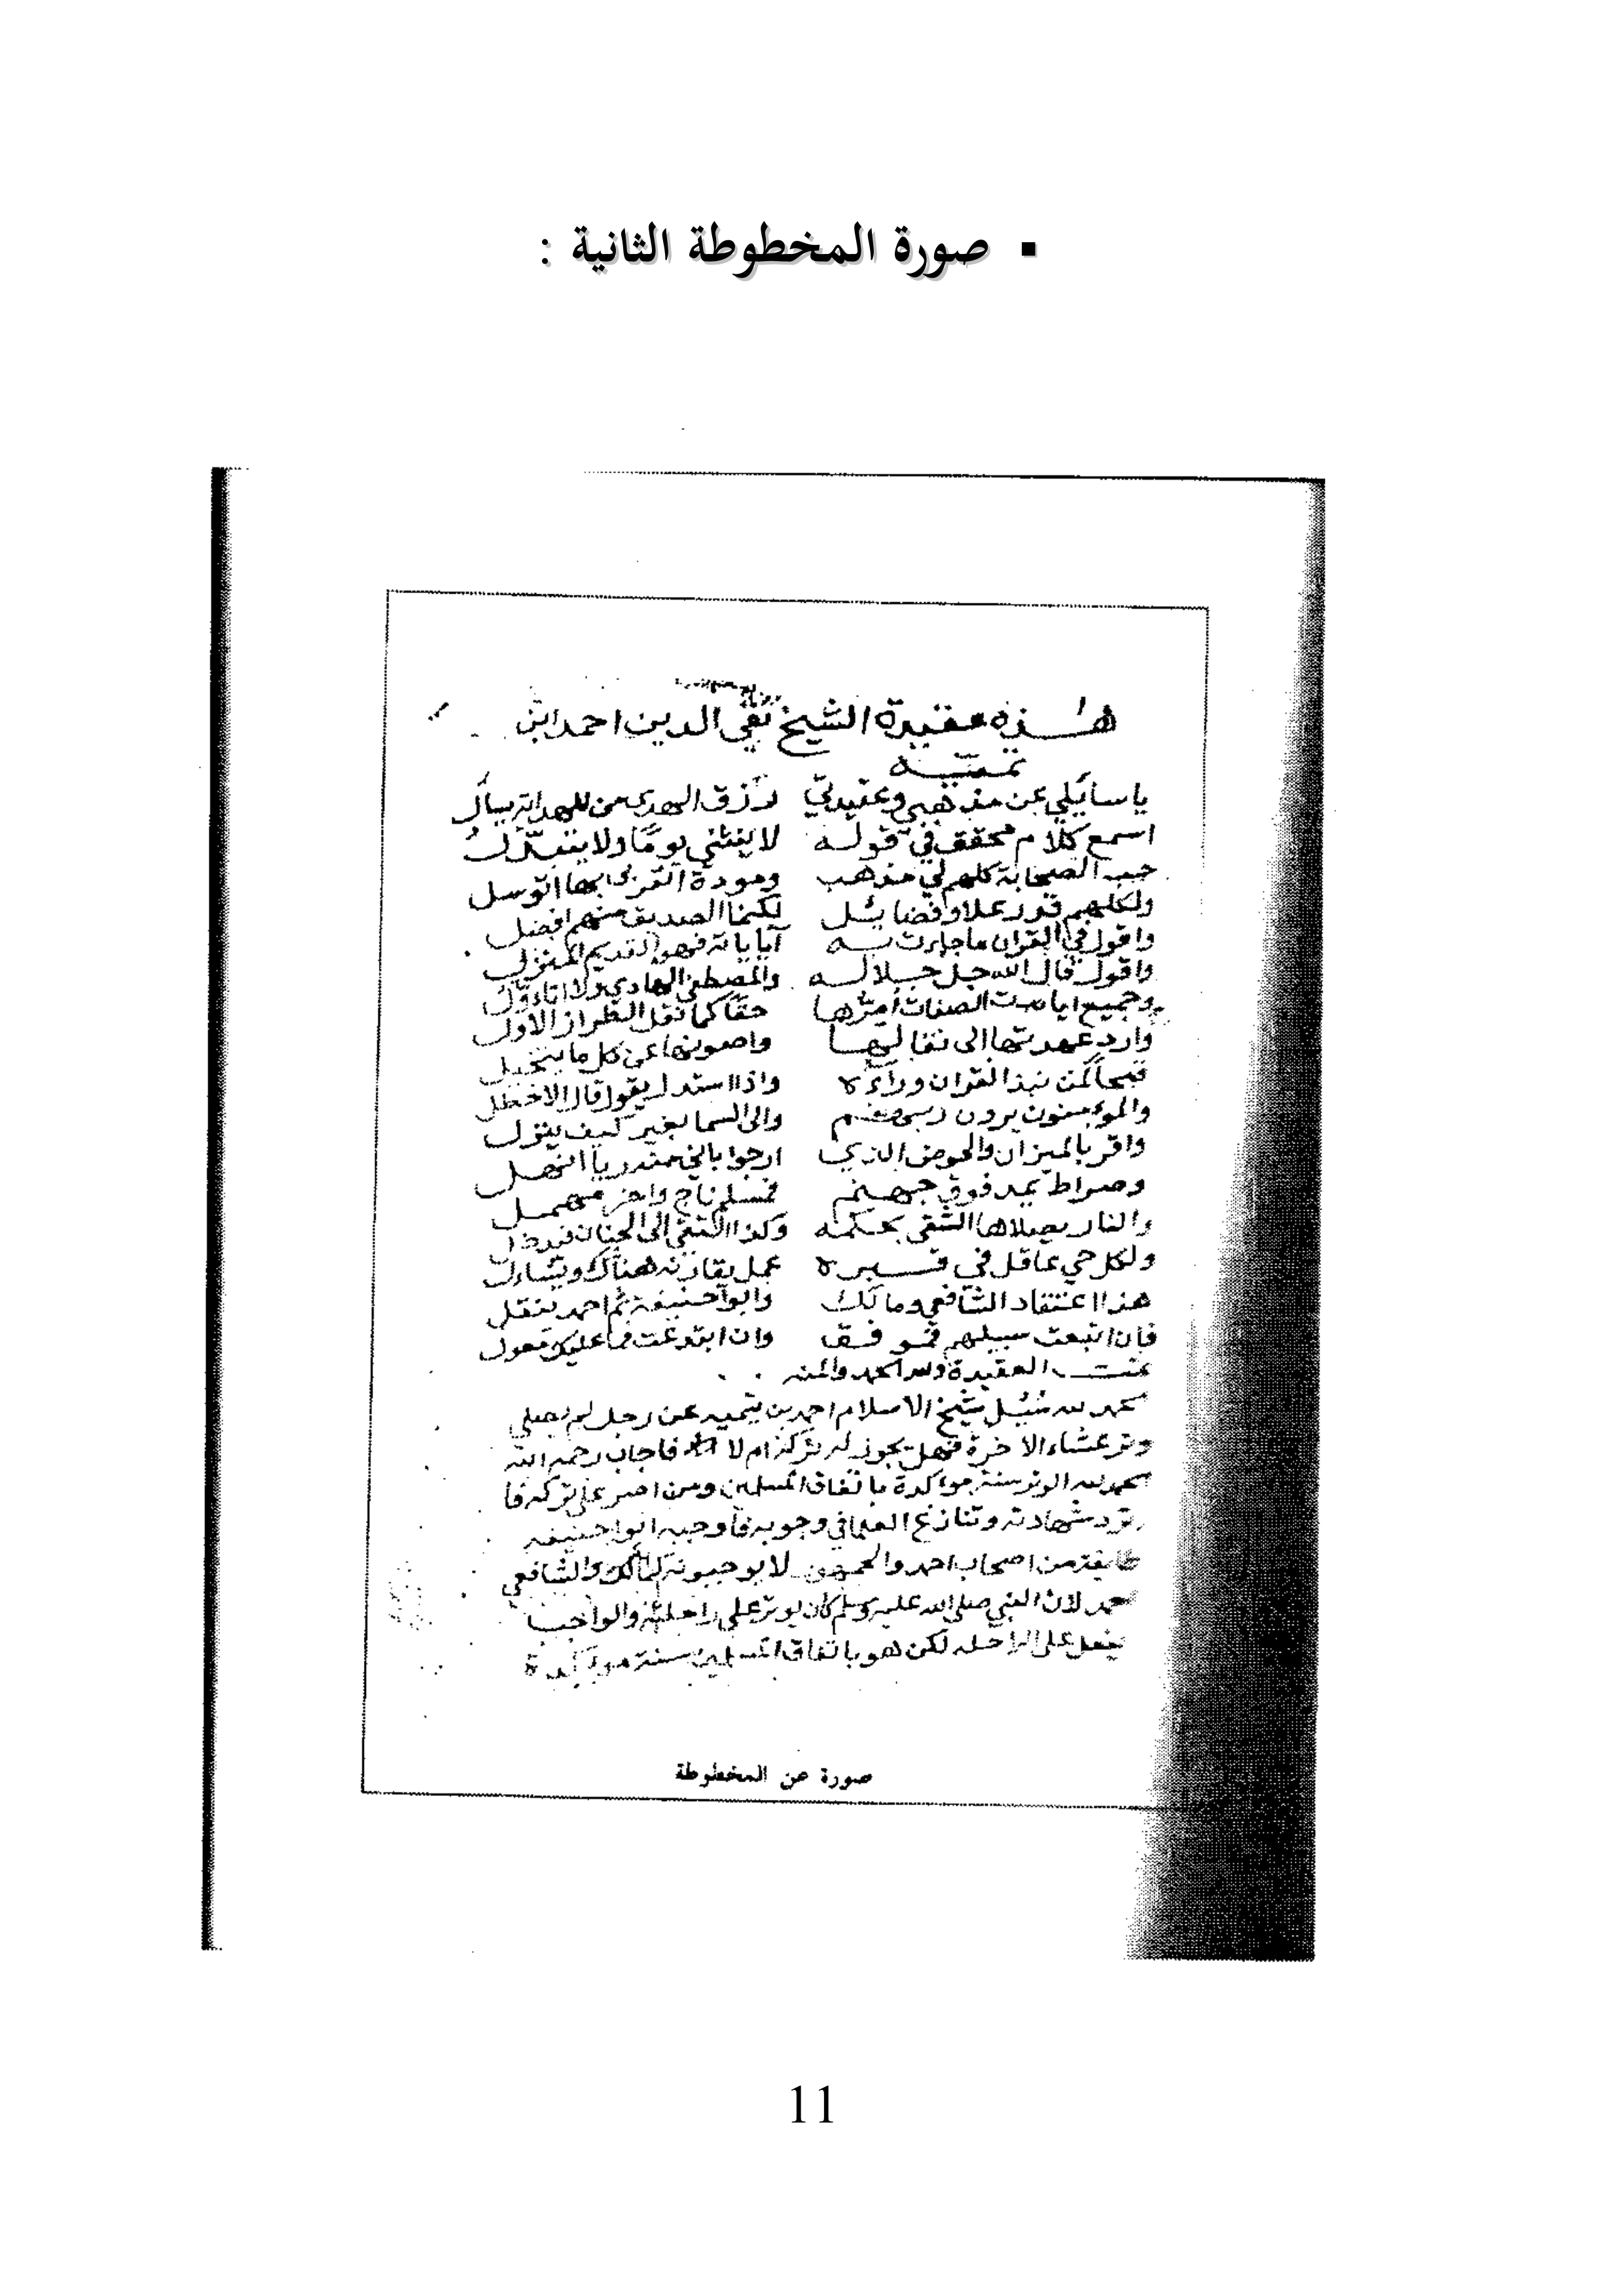 ▪ صورة المخطوطة الثانية :
هذه عقيدة الشيخ تقي الدين احمد ابن
تيمية
ياسائلي عن مذهبي وعقيدتي رزق الهدى من للهداية يسأل
اسمع كلام محقق في قوله لا ينثني يوما ولا يتبدل
حب الصحابة كلهم لي مذهب ومودة القربى بها اتوسل
ولكلهم قدر علا وفضايل لكنما الصديق منهم افضل
واقول في القران ما جاءت به آياياته فهو القديم المنزل
واقول قال الله جل جلاله والمصطفى الهادي ولا اتاول
وجميع ايات الصفات امرها حقا كما نقل الطراز الاول
وارد عهدتها الى نقالها واصونها عن كل ما يتخيل
قبحا لمن نبذ القران وراءه واذا استدل يقول قال الاخطل
والمومنون يرون ربهم والى السما بغير كيف ينزل
واقر بالميزان والحوض الذي ارجوا باني منه ريا انهل
وصراط يمد فوق جهنم فمسلم ناج واخر مهمل
والنار يصلاها الشقي بحكمه وكذا التقي الى الجنان
ولكل حي عاقل في قبره عمل يقارنه هناك ويسال
هذا اعتقاد الشافعي ومالك وابو حنيفة ثم احمد ينقل
فان اتبعت سبيلهم فموفق وان ابتدعت فما عليك معول
تمت العقيدة ولله الحمد والمنه
الحمد لله سئل شيخ الاسلام احمد بن تيميه عن رجل لم يصلي
وتر عشاء الاخرة فهل يجوز له تركه ام لا فاجاب رحمه الله
الحمد لله الوتر سنة موكدة باتفاق المسلمين ومن اصر على تركه فا
ترد شهادته وتنازع العلما في وجوبه فاوجبه ابو حنيفه
طايفة من اصحاب احمد والجمهور لا يوجبونه كمالك والشافعي
احمد لان النبي صلى الله عليه وسلم كان يوتر على راحلته والواجب
يفعل على الراحله لكن هو باتفاق المسلمين سنة موكدة
صورة عن المخطوطة
11